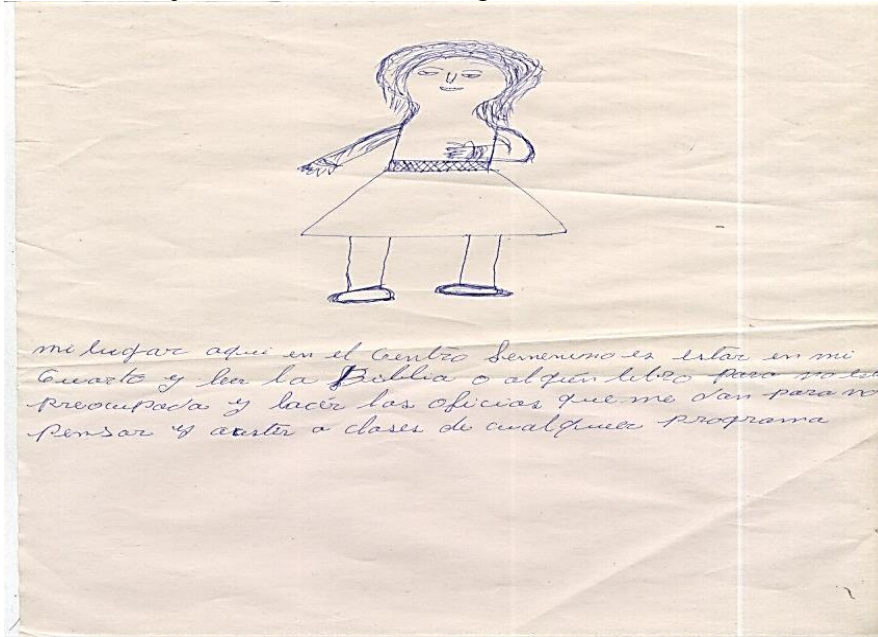 mi lugar aqui en el Centro femenino es estar en mi
Cuarto y leer la Biblia o algún libro para no
preocupada y hacer los oficios que me dan para no
pensar y asistir a clases de cualquier programa